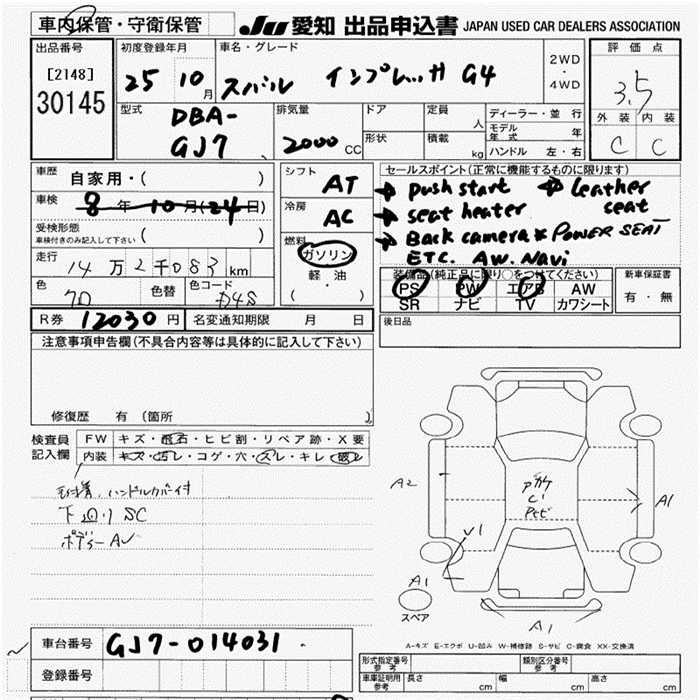 車内保管・守衛保管
JU 愛知 出品申込書 JAPAN USED CAR DEALERS ASSOCIATION
出品番号
[2148]
30145
初度登録年月
25 10月
車名・グレード
スバル インプレッサ G4
2WD
・
4WD
評価点
3.5
外装 内装
C C
型式
DBA-
GJ7
排気量
2000 CC
ドア
形状
定員
人
積載
kg
ディーラー・並行
モデル年式 年
ハンドル 左・右
車歴
自家用・( )
車検
8年10月(24日)
受検形態
車検付きのみ記入して下さい
( )
走行
14万2千083km
色 色替 色コード
D4S
シフト
AT
冷房
AC
燃料
ガソリン
軽・油
( ・ )
セールスポイント(正常に機能するものに限ります)
→ Push start → Leather seat
→ seat heater
→ Back camera * POWER SEAT
ETC. AW. Navi
装備品(純正品に限り○をつけてください)
PS PW エアB AW
SR ナビ TV カワシート
新車保証書
有・無
R券 12030円 名変通知期限 月 日
後日品
注意事項申告欄(不具合内容等は具体的に記入して下さい)
修復歴 有(箇所 )
検査員記入欄
FW キズ・飛石・ヒビ割・リペア跡・X要
内装 キズ・汚レ・コゲ・穴・スレ・キレ・
ハンドルカバー付
下回り SC
ボディー AU
A2
A1
V1
A1
A1
スペア
A-キズ E-エクボ U-凹み W-補修跡 S-サビ C-腐食 XX-交換済
車台番号 GJ7-014031
登録番号
型式指定番号 参考
類別区分番号 参考
車庫証明用 参考 長さ cm 幅 cm 高さ cm